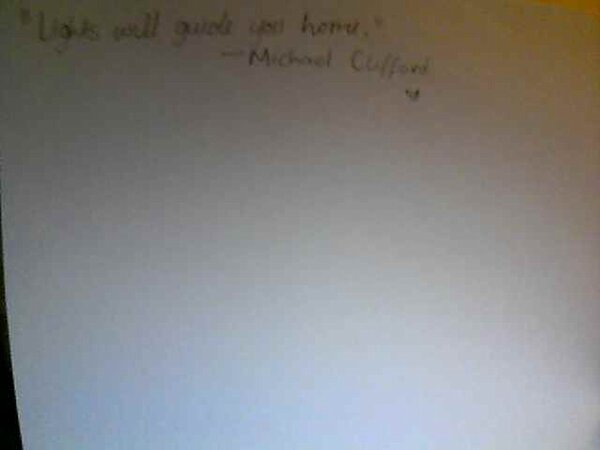 "Lights will guide you home."
— Michael Clifford